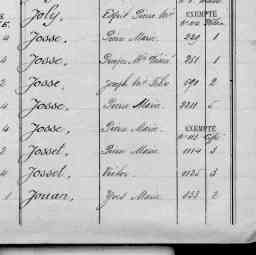 Joly, Esprit Pierre Mie EXEMPTÉ
4 Josse, Pierre Marie 229 1
4 Josse, Marie 251 1
2 Josse, Joseph Mie 690 2
4 Josse, Pierre Marie 2211 5
4 Josse, Pierre Marie EXEMPTÉ
2 Josset, Pierre Marie 1114 3
4 Josset, Victor 1125 3
1 Jouan, Yves Marie 833 2